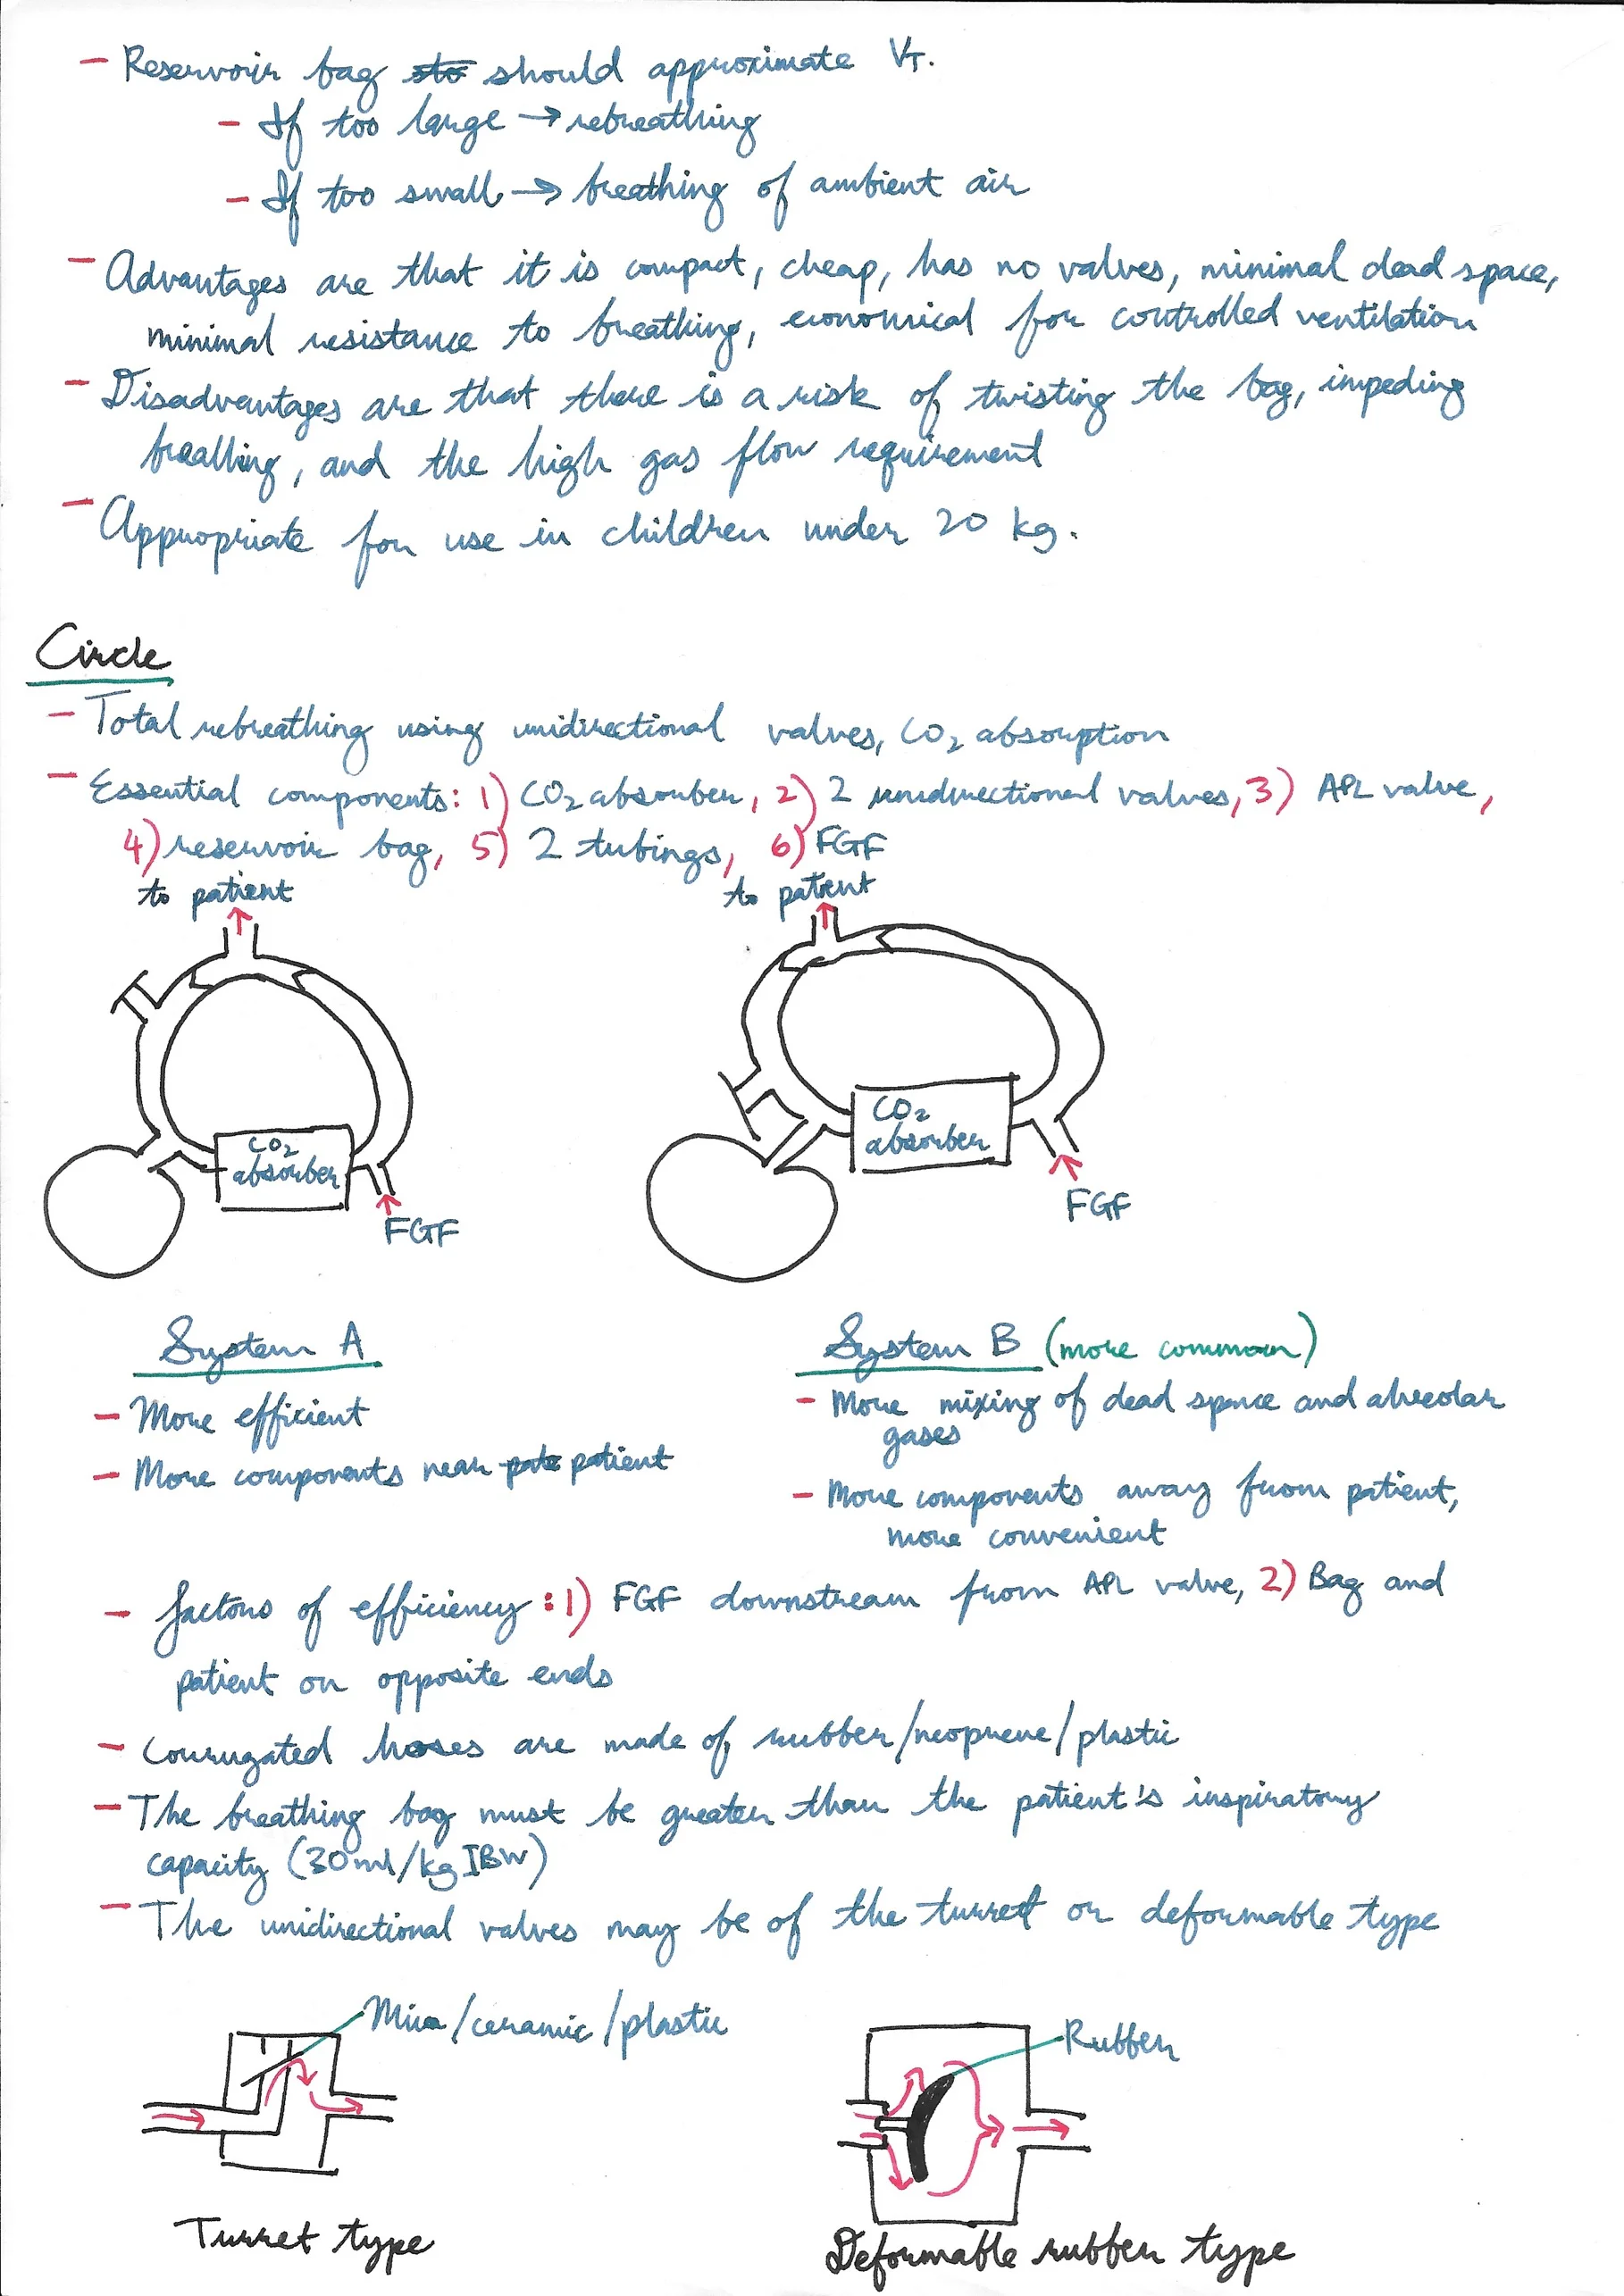 - Reservoir bag should approximate VT.
- If too large → rebreathing
- If too small → breathing of ambient air
- Advantages are that it is compact, cheap, has no valves, minimal dead space,
minimal resistance to breathing, economical for controlled ventilation
- Disadvantages are that there is a risk of twisting the bag, impeding
breathing, and the high gas flow requirement
- Appropriate for use in children under 20 kg.
Circle
- Total rebreathing using unidirectional valves, CO₂ absorption
- Essential components: 1) CO₂ absorber, 2) 2 unidirectional valves, 3) APL valve,
4) reservoir bag, 5) 2 tubings, 6) FGF
to patient
to patient
CO₂
absorber
FGF
CO₂
absorber
FGF
System A
- More efficient
- More components near patient
System B (more common)
- More mixing of dead space and alveolar
gases
- More components away from patient,
more convenient
- factors of efficiency: 1) FGF downstream from APL valve, 2) Bag and
patient on opposite ends
- Corrugated hoses are made of rubber/neoprene/plastic
- The breathing bag must be greater than the patient's inspiratory
capacity (30ml/kg IBW)
- The unidirectional valves may be of the turret or deformable type
Mica/ceramic/plastic
Rubber
Turret type
Deformable rubber type